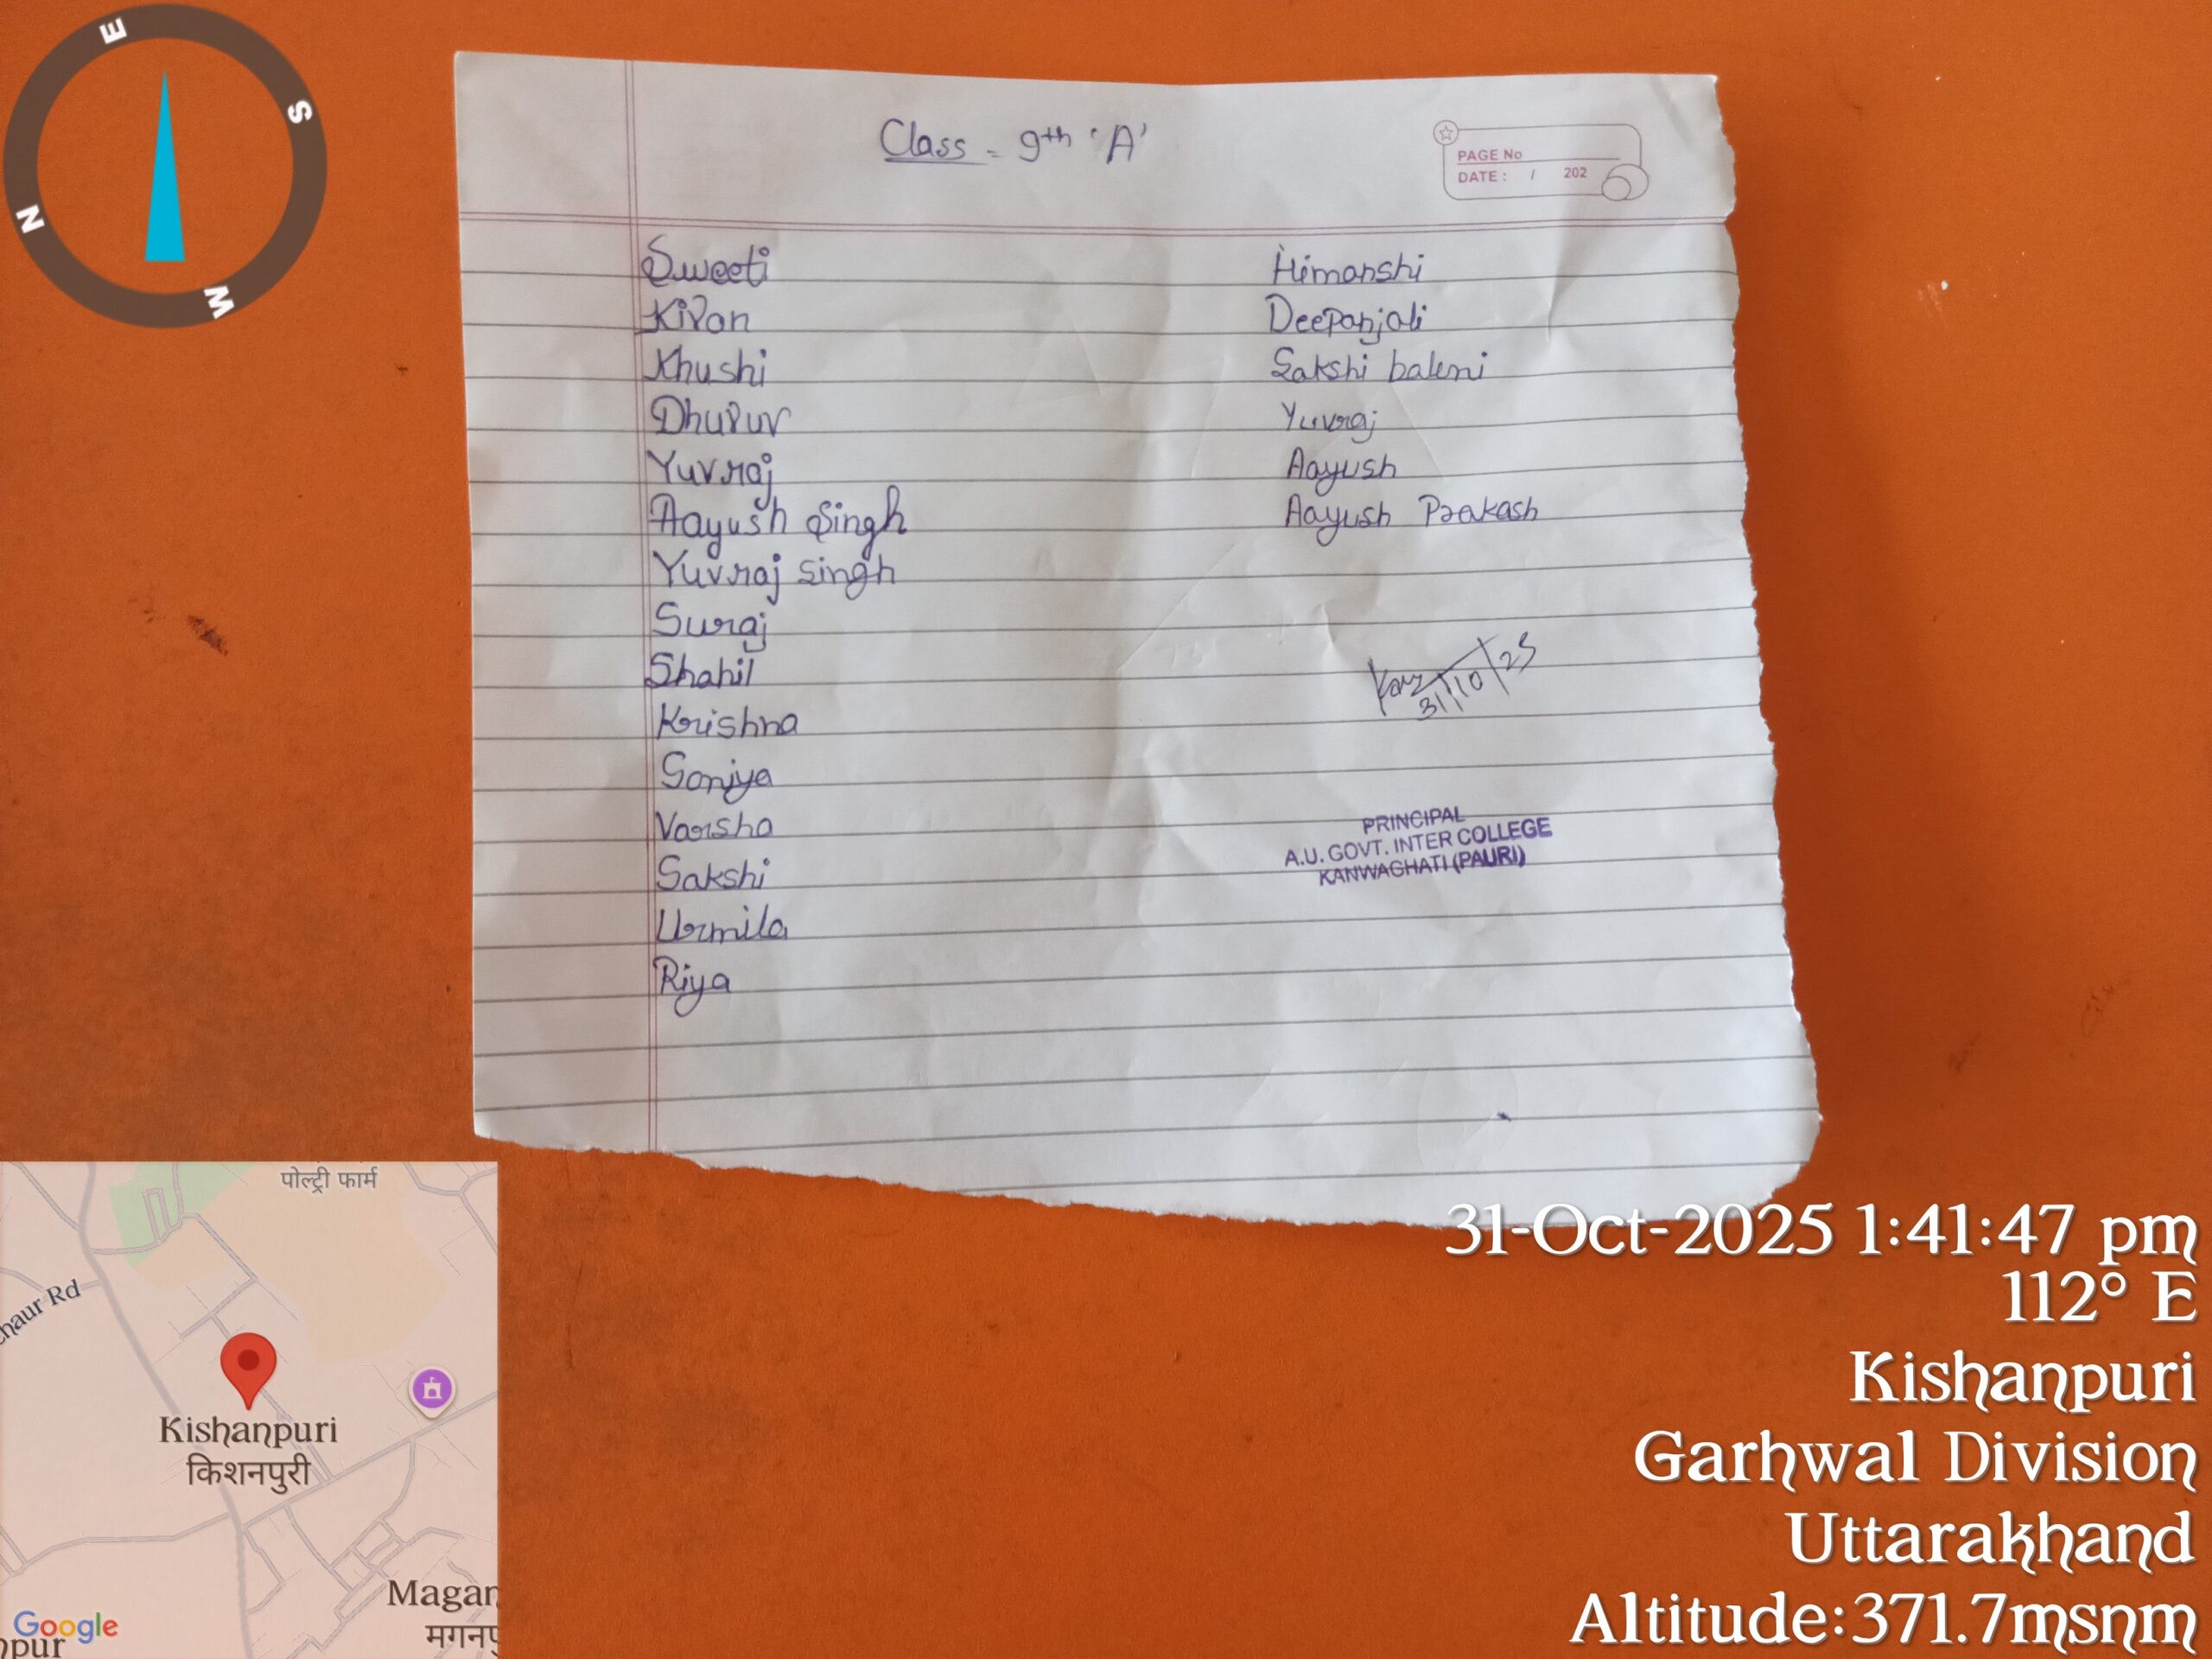 Class - 9th 'A'
PAGE No
DATE : / 202
Sweeti
Kiran
Khushi
Dhuruv
Yuvraj
Aayush Singh
Yuvraj Singh
Suraj
Shahil
Krishna
Soniya
Varsha
Sakshi
Urmila
Riya
Himanshi
Deepanjali
Sakshi baleni
Yuvraj
Aayush
Aayush Prakash
31/10/25
PRINCIPAL
A.U. GOVT. INTER COLLEGE
KANWAGHATI (PAURI)
E
S
N
W
पोल्ट्री फार्म
haur Rd
Kishanpuri
किशनपुरी
Magan
मगनपु
Google
pur
31-Oct-2025 1:41:47 pm
112° E
Kishanpuri
Garhwal Division
Uttarakhand
Altitude:371.7msnm